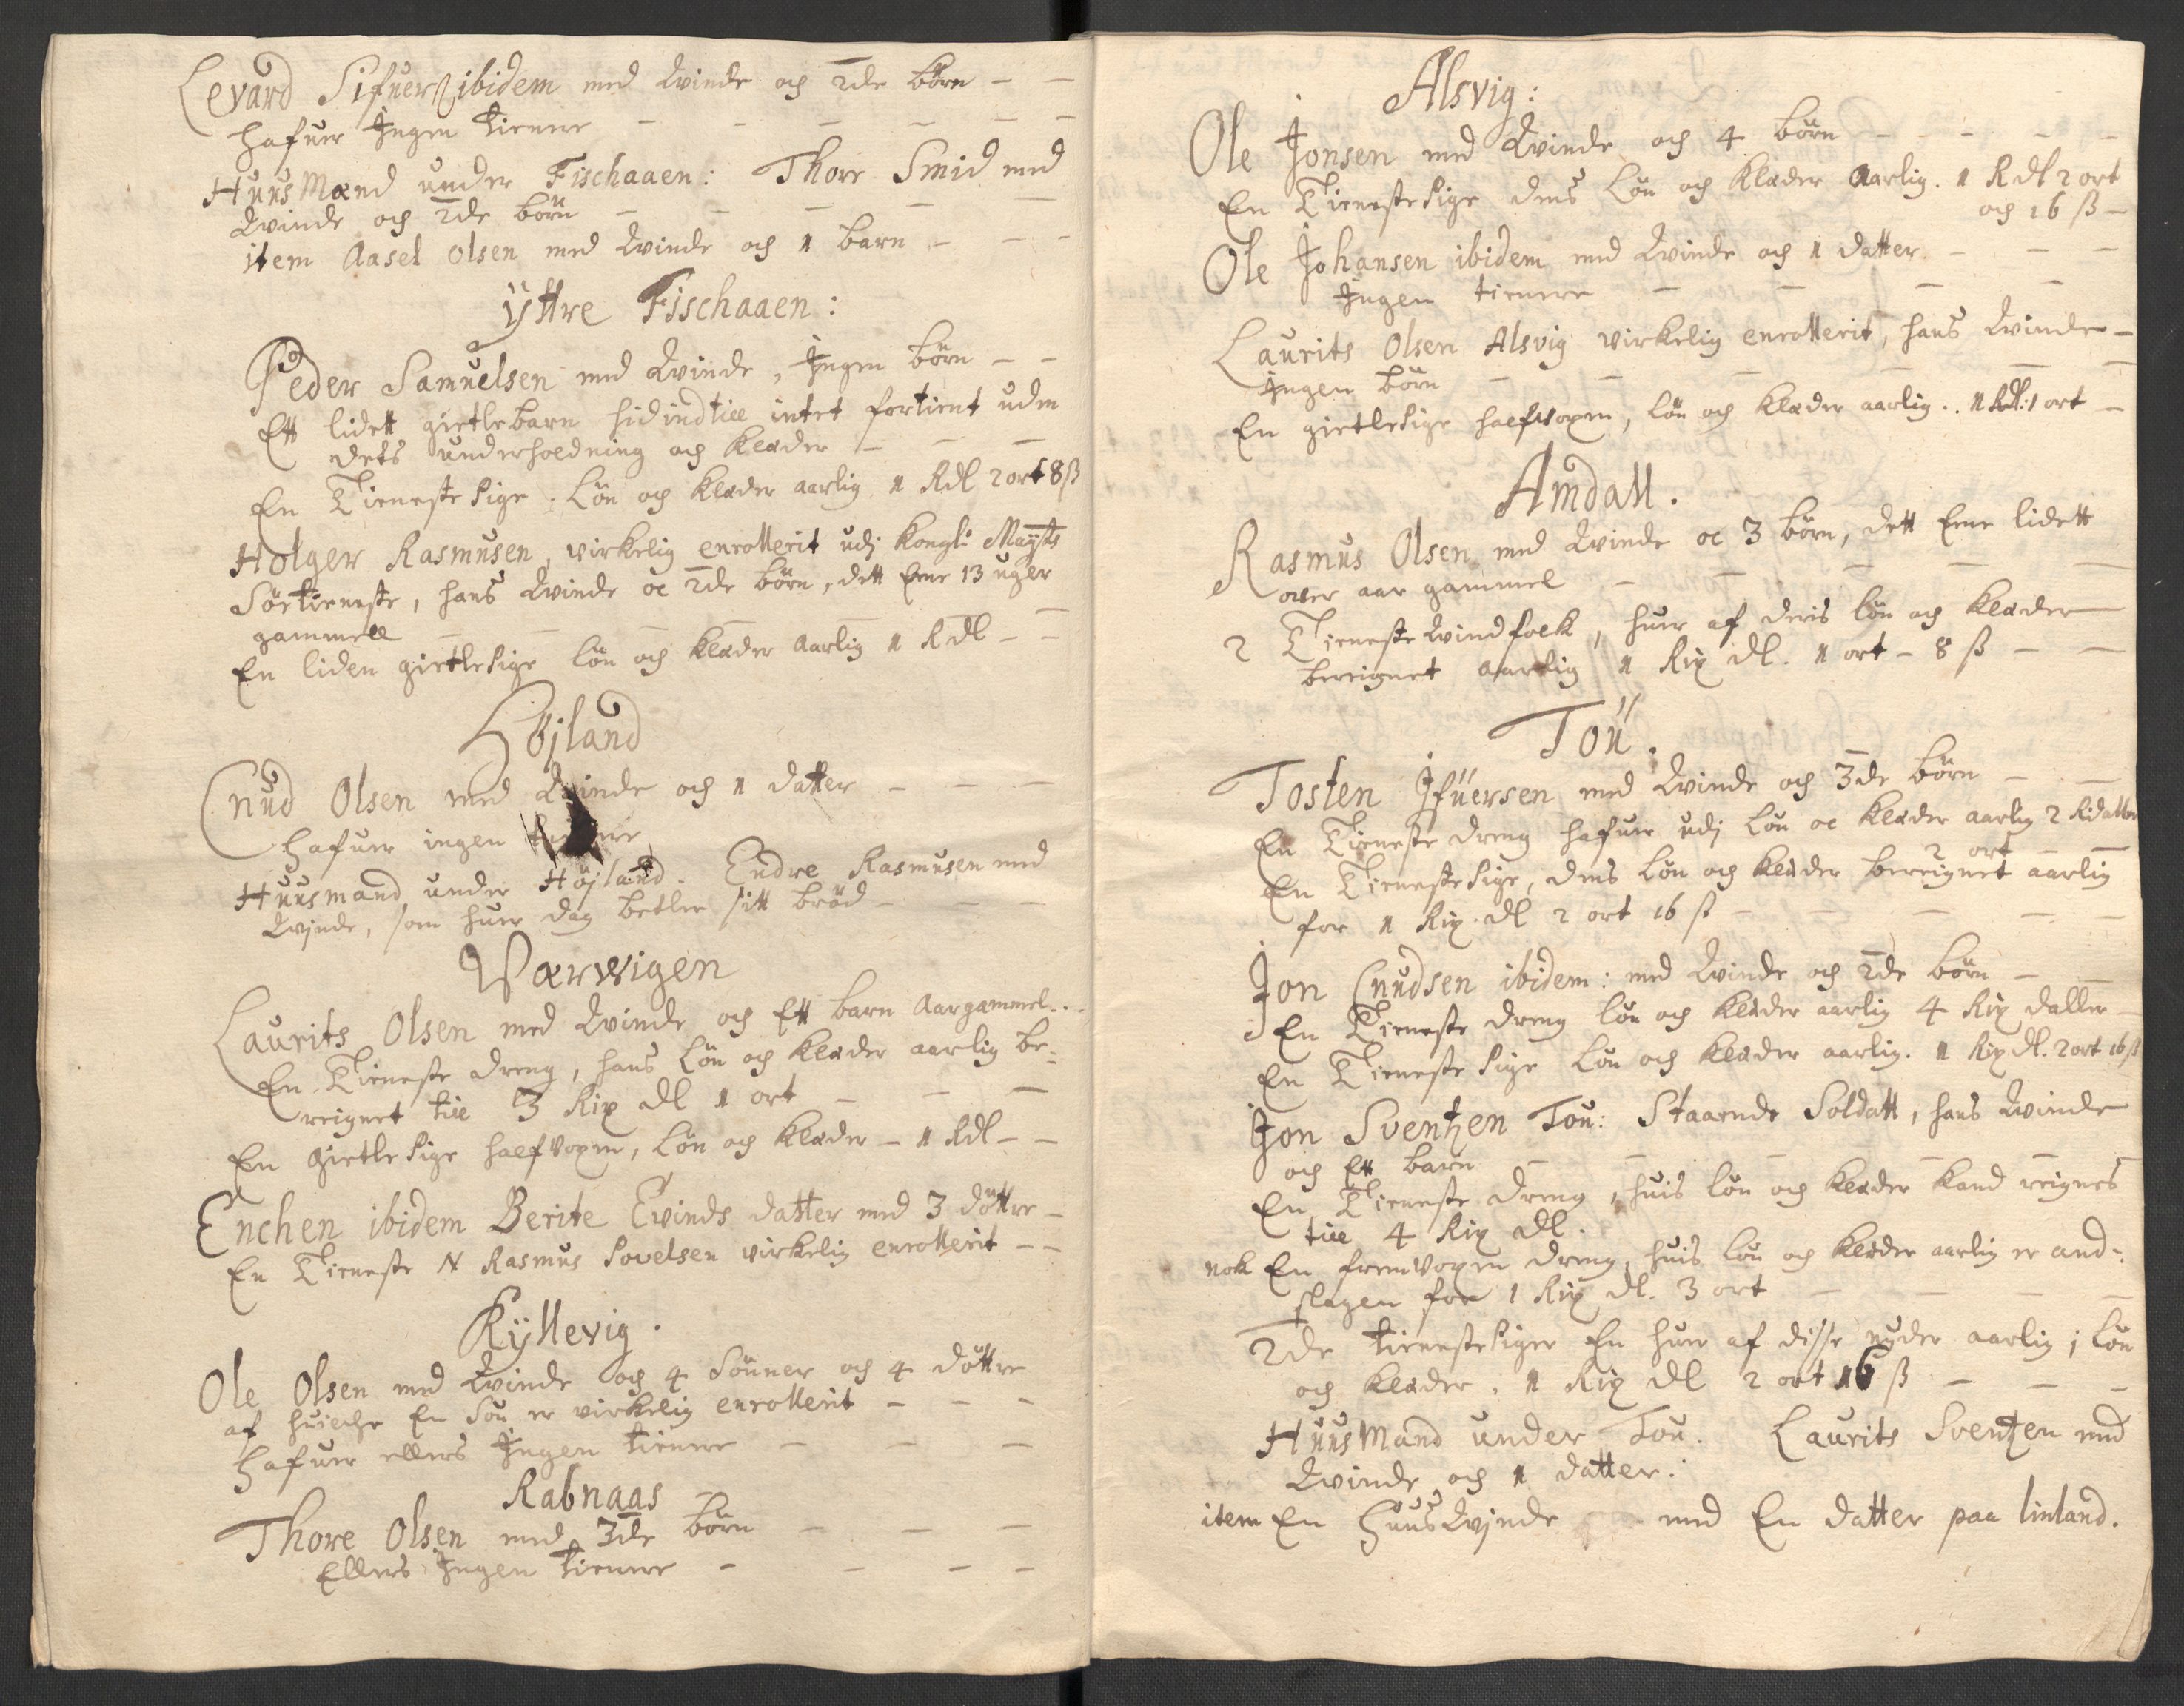 Levard Sifuers ibidem med Qvinde och 2de börn - -
hafuer Ingen tienere - - - - - -
HuusMænd under Fischaaen: Thore Smid med
Qvinde och 2de börn - - - - -
item Aasel Olsen med Qvinde och 1 barn - - -
ÿttre Fischaaen:
Peder Samuelsen med Qvinde, Ingen börn - -
Ett lidett gietlebarn hidindtill intet fortient uden
dets underholdning och Klæder - - -
En Tieneste Pige. Lön och Klæder aarlig 1 Rdl 2 ort 8 ß
Holger Rasmusen, virkelig enrollerit udj Kongl: Maÿts
Söetieneste, hans Qvinde oc 2de börn, dett Eene 13 uger
gammell - - - - -
En liden gietlePige lön och Klæder aarlig 1 Rdl - -
Höjland
Cnud Olsen med Qvinde och 1 datter - - -
hafuer ingen tienere
Huusmand under Höjland. Endre Rasmusen med
Qvjnde, som huer dag betler sitt bröd - - -
Wærwigen
Laurits Olsen med Qvinde och Ett barn Aargammel...
En Tieneste dreng, hans Lön och Klæder aarlig be=
reignet till 3 Rix dl 1 ort - - -
En gietle Pige halfvoxen, Lön och Klæder - 1 Rdl - -
Enchen ibidem Berite Evinds datter med 3 döttre -
En Tieneste N Rasmus Povelsen virkelig enrollerit - -
Kÿllevig.
Ole Olsen med Qvinde och 4 Sönner och 4 döttre
af huilche En Sön er virkelig enrollerit - - -
hafuer ellers Ingen tienere - - -
Rabnaas
Thore Olsen med 3de börn - - -
Ellers Ingen tienere - - - -
Alsvig:
Ole Jonsen med Qvinde och 4 börn - - - - -
En TienestePige dens Lön och Klæder Aarlig. 1 Rdl 2 ort
och 16 ß -
Ole Johansen ibidem med Qvinde och 1 datter - - -
Ingen tienere - - - -
Laurits Olsen Alsvig virkelig enrollerit, hans Qvinde -
Ingen börn - - - - -
En gietlePige halfvoxen, Lön och Klæder aarlig.. 1 Rdl: 1 ort -
Amdall.
Rasmus Olsen med Qvinde oc 3 börn, dett Eene lidett
over aar gammel - - - - -
2 Tieneste Qvindfolck, huer af deris lön och Klæder
bereignet aarlig 1 Rix dl. 1 ort - 8 ß - -
Töu.
Tosten Ifuersen med Qvinde och 3de börn - -
En Tieneste dreng hafuer udj Lön oc Klæder aarlig 2 Rixdaller
2 ort
En TienestePige, dens Lön och Klæder bereignet aarlig
for 1 Rix. dl 2 ort 16 ß - - - - -
Jon Cnudsen ibidem: med Qvinde och 2de börn - -
En Tieneste dreng lön och Klæder aarlig 4 Rix daller -
En Tieneste Pige Lön och Klæder aarlig. 1 Rix dl. 2 ort 16 ß
Jon Sventzen Tou: Staaende Soldatt, hans Qvinde
och Ett barn - - - - -
En Tieneste dreng, huis lön och Klæder Kand reignes
till 4 Rix dl.
nok En fremVoxen dreng, huis lön och Klæder aarlig er and=
slagen for 1 Rix dl. 3 ort - - - -
2de tienestePiger En huer af disse nyder aarlig j Lön
och Klæder. 1 Rix dl 2 ort 16 ß - - -
HuusMand under Tou. Laurits Sventzen med
Qvinde och 1 datter.
item En HuusQvjnde med En datter paa linland.